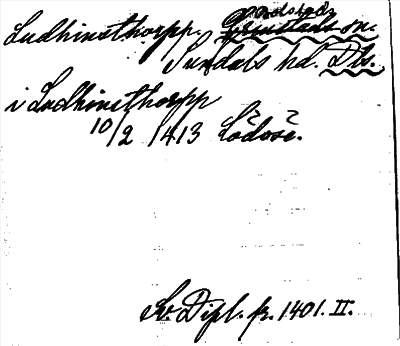 Ludhinsthorpp. Grinstads sn.
Sundals hd. Dls.
i Ludhinsthorpp
10/2 1413 Lödöse.
Sv. Dipl. fr. 1401. II.